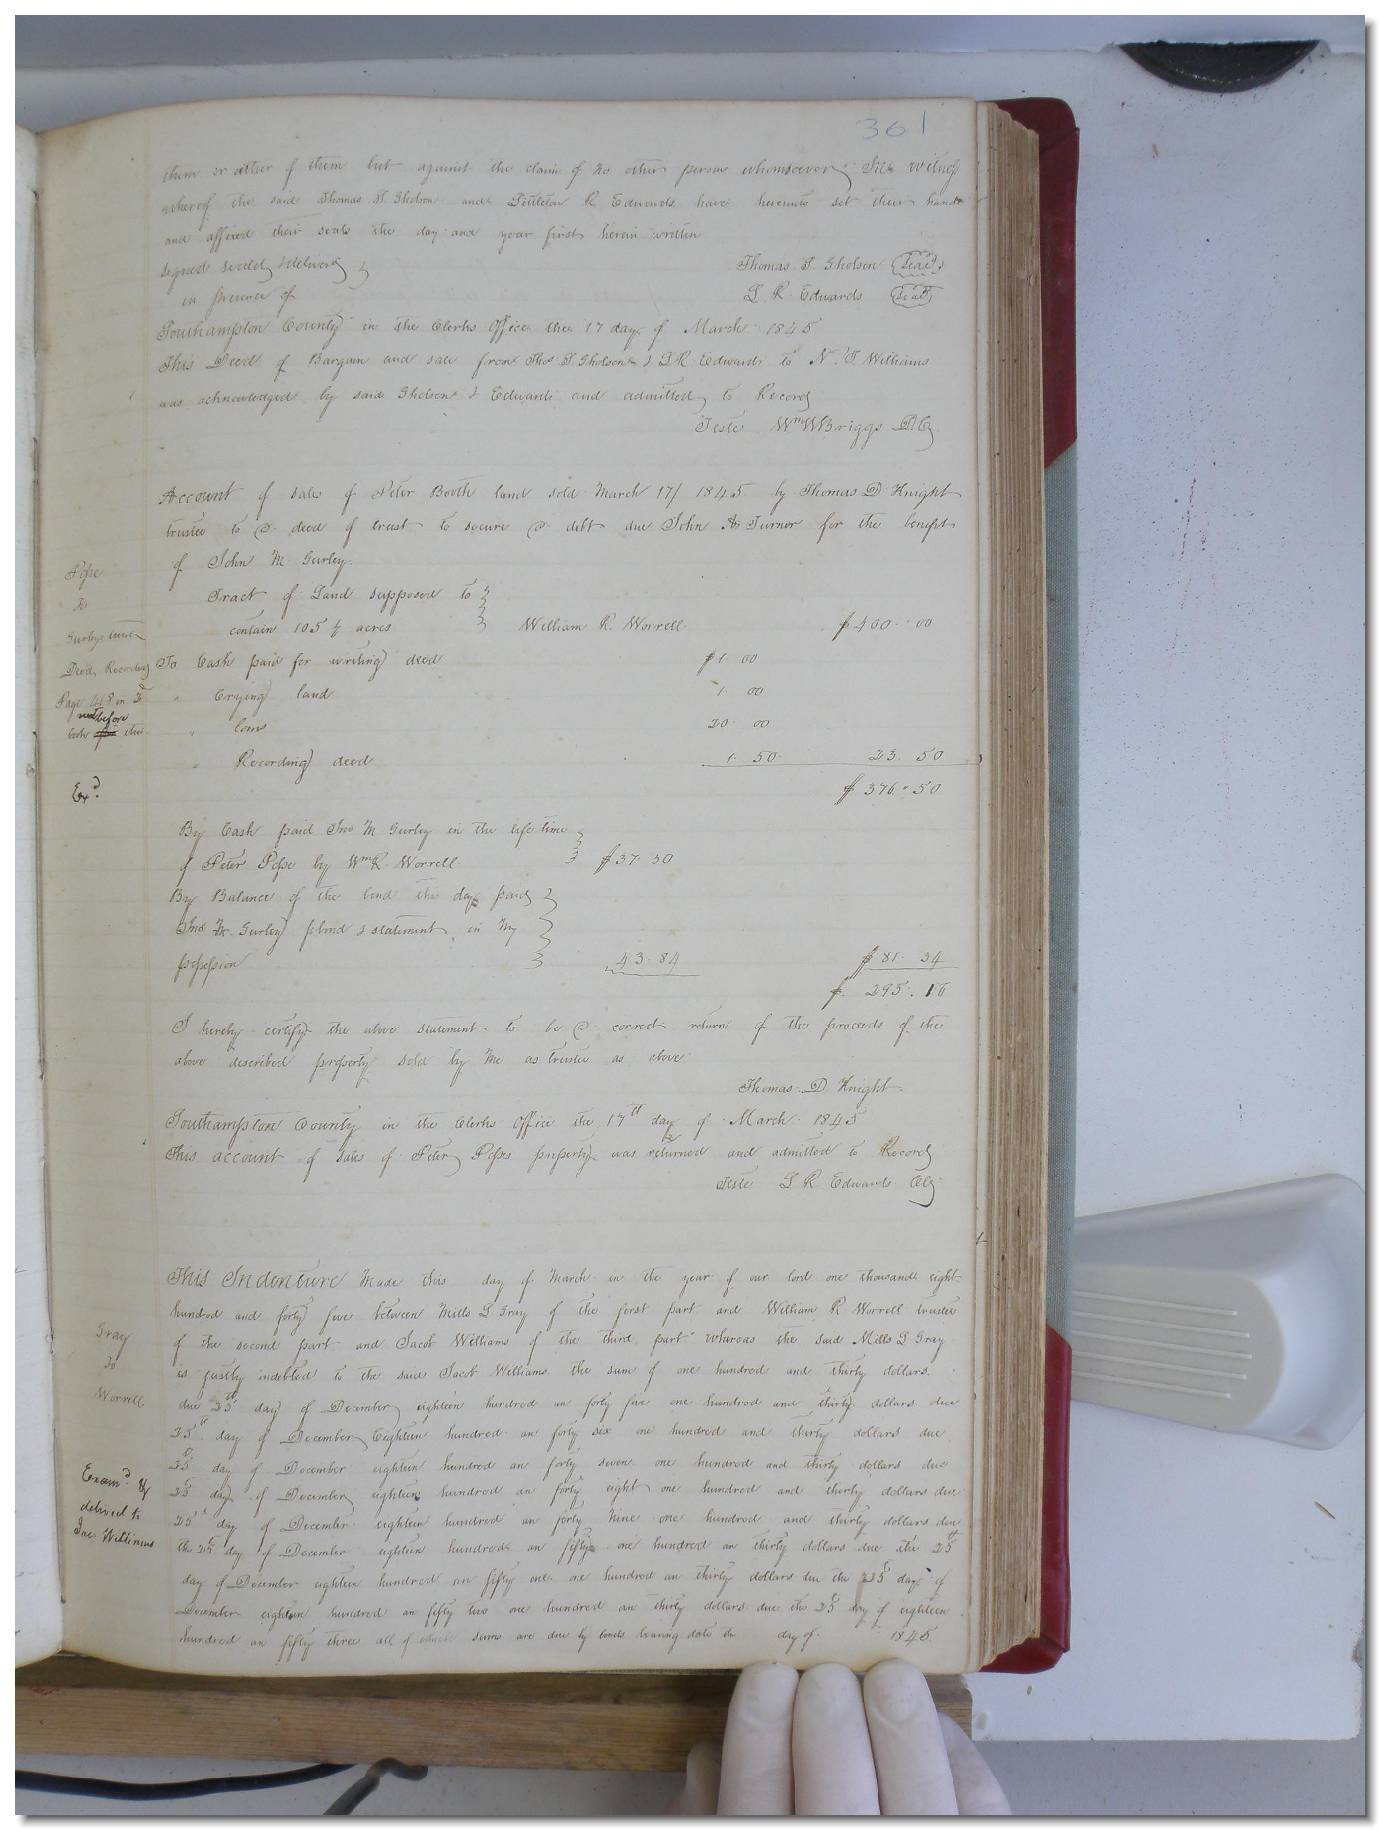 361
them or either of them but against the claim of no other person whomsoever. In witness
whereof the said Thomas S Gholson and Littleton R Edwards have hereunto set their hands
and affixed their seals the day and year first herein written
signed sealed & delivered
in presence of
Thomas S. Gholson (Seal)
L R Edwards (Seal)
Southampton County in the Clerks Office the 17 day of March 1845
This Deed of Bargain and sale from Thos S Gholson & L R Edwards to N. T Williams
was acknowledged by said Gholson & Edwards and admitted to Record
Teste Wm W Briggs D.C
Account of sales of Peter Booth land sold March 17/ 1845 by Thomas D Knight
trustee to a deed of trust to secure a debt due John A Turner for the benefit
of John M Gurley.
Tract of Land supposed to
contain 105 ½ acres William R. Worrell $400.00
To Cash paid for writing deed $1.00
" Crying land 1.00
" 20.00
" Recording deed 1.50 23.50
$376.50
Pope
To
Gurleys
Deed, Recording
Page
next before
book this
Exd.
By Cash paid Jno M Gurley in the life time
of Peter Pope by Wm R. Worrell $37.50
By Balance of the bond this day paid
Jno M. Gurley pr bond & statement in my
possession 43.84 $81.34
$295.16
I hereby certify the above statement to be a correct return of the proceeds of the
above described property sold by me as trustee as above
Thomas D Knight
Southampton County in the Clerks Office the 17th day of March 1845
This account of sales of Peter Popes property was returned and admitted to Record
Teste L R Edwards Clk
This Indenture Made this day of March in the year of our lord one thousand eight
hundred and forty five between Mills L Gray of the first part and William R Worrell trustee
of the second part and Jacob Williams of the third part whereas the said Mills L Gray
is justly indebted to the said Jacob Williams the sum of one hundred and thirty dollars.
due 25th day of December eighteen hundred an forty five one hundred and thirty dollars due
25th day of December Eighteen hundred an forty six one hundred and thirty dollars due
25 day of December eighteen hundred an forty seven one hundred and thirty dollars due
25 day of December eighteen hundred an forty eight one hundred and thirty dollars due
25th day of December eighteen hundred an forty nine one hundred and thirty dollars due
the 25 day of December eighteen hundred an fifty one hundred an thirty dollars due the 25th
day of December eighteen hundred an fifty one one hundred an thirty dollars due the 25 day of
December eighteen hundred an fifty two one hundred an thirty dollars due the 25 day of eighteen
hundred an fifty three all of which sums are due by bonds bearing date the day of 1845
Gray
to
Worrell
Examd &
delivered to
Jac Williams